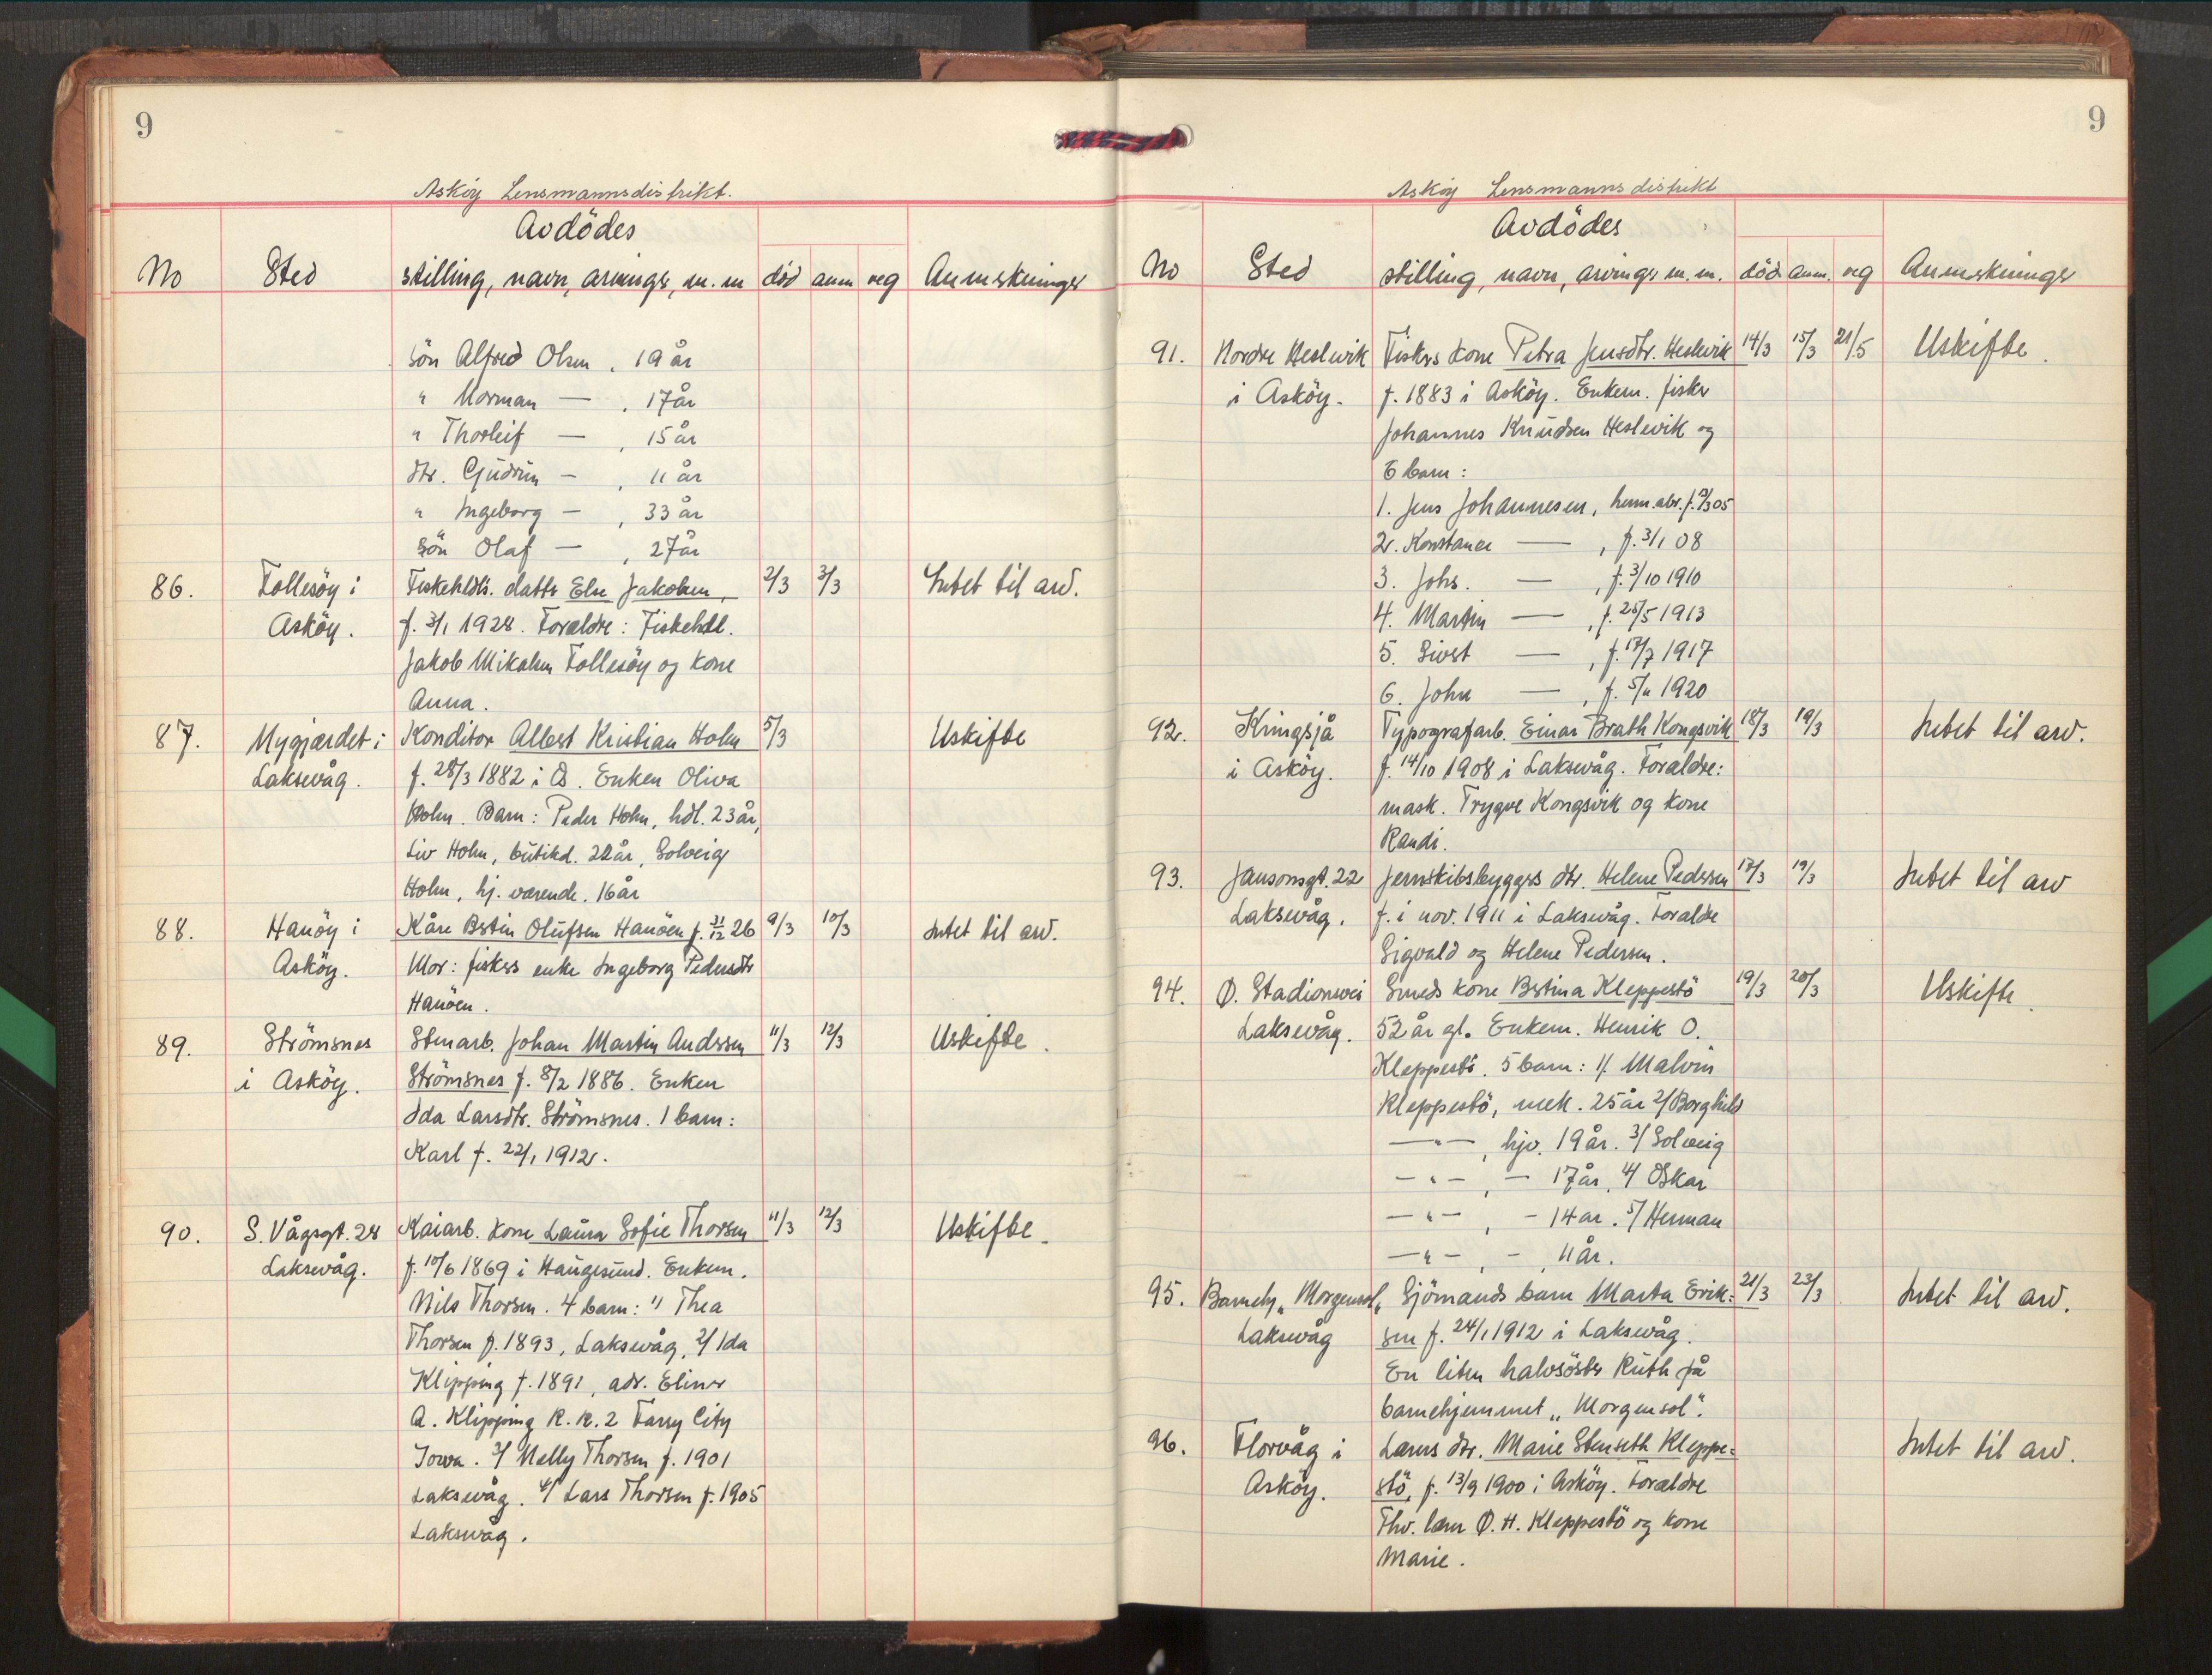 9
Askøy Lensmannsdistrikt.
Avdödes
No Sted stilling, navn, arvinger, m. m död anm reg Anmerkninger
sön Alfred Olsen, 19 år
" Norman — , 17 år
" Thorleif — , 15 år
dtr. Gudrun — , 11 år
" Ingeborg — , 33 år
sön Olaf — , 27 år
86. Follesöy i Fiskehdls. datter Else Jakobsen, 2/3 3/3 Intet til arv.
Asköy. f. 3/1 1928. Foreldre: Fiskehdl.
Jakob Mikalsen Follesöy og kone
Anna.
87. Nygjærdet i Konditor Albert Kristian Holm 5/3 Uskifte
Laksevåg. f. 28/3 1882 i Os. Enken Oliva
Holm. Barn: Peder Holm, hdl. 23 år,
Liv Holm, butikd. 22 år, Solveig
Holm, hj. værende. 16 år
88. Hanöy i Kåre Bertin Olufsen Hanöen f. 31/12 26 9/3 10/3 Intet til arv.
Asköy. Mor: fiskers enke Ingeborg Pedersdtr
Hanöen.
89. Strömsnes Stenarb. Johan Martin Andersen 11/3 12/3 Uskifte.
i Asköy. Strömsnes f. 8/2 1886. Enken
Ida Larsdtr. Strömsnes. 1 barn:
Karl f. 22/1 1912.
90. S. Vågsgt. 28 Kaiarb. kone Laura Sofie Thorsen 11/3 12/3 Uskifte.
Laksevåg. f. 10/6 1869 i Haugesund. Enkem.
Nils Thorsen. 4 barn: 1/ Thea
Thorsen f. 1893, Laksevåg, 2/ Ida
Klipping f. 1891, adr. Eliner
A. Klipping R. R. 2 Farry City
Iowa. 3/ Nelly Thorsen f. 1901
Laksevåg. 4/ Lars Thorsen f. 1905
Laksevåg.
9
Askøy Lensmannsdistrikt
Avdödes
No Sted stilling, navn, arvinger m. m. död anm. reg Anmerkninger
91. Nordre Heslevik Fiskers kone Petra Jensdtr. Heslevik 14/3 15/3 21/5 Uskifte.
i Asköy. f. 1883 i Asköy. Enkem. fisker
Johannes Knudsen Heslevik og
6 barn:
1. Jens Johannesen, herm. abr. f. 9/3 05
2. Konstance — , f. 3/1 08
3. Johs. — , f. 3/10 1910
4. Martin — , f. 25/5 1913
5. Sivert — , f. 17/7 1917
6. John — , f. 5/11 1920
92. Kringsjå Typografarb. Einar Brath Kongsvik 18/3 19/3 Intet til arv.
i Asköy. f. 14/10 1908 i Laksevåg. Foreldre:
mask. Trygve Kongsvik og kone
Randi.
93. Jansonsgt. 22 Jernskibsbyggers dtr. Helene Pedersen 17/3 19/3 Intet til arv
Laksevåg. f. i nov. 1911 i Laksevåg. Foreldre
Sigvald og Helene Pedersen.
94. Ø. Stadionvei Smeds kone Bertina Kleppestö 19/3 20/3 Uskifte.
Laksevåg. 52 år gl. Enkem. Henrik O.
Kleppestö. 5 barn: 1/ Malvin
Kleppestö, mek. 25 år 2/ Borghild
— " —, hjv. 19 år. 3/ Solveig
— " —, — 17 år, 4/ Oskar
— " —, — 14 år. 5/ Herman
— " —, —, 11 år.
95. Barnehj. "Morgensol" Sjömands barn Marta Erik= 21/3 23/3 Intet til arv.
Laksevåg sen f. 24/1 1912 i Laksevåg.
En liten halvsöster Ruth på
barnehjemmet „Morgensol".
96. Florvåg i Lærers dtr. Marie Stenseth Kleppe= Intet til arv.
Asköy. stö, f. 13/9 1900 i Asköy. Foreldre
Thv. lærer O. H. Kleppestö og kone
Marie.